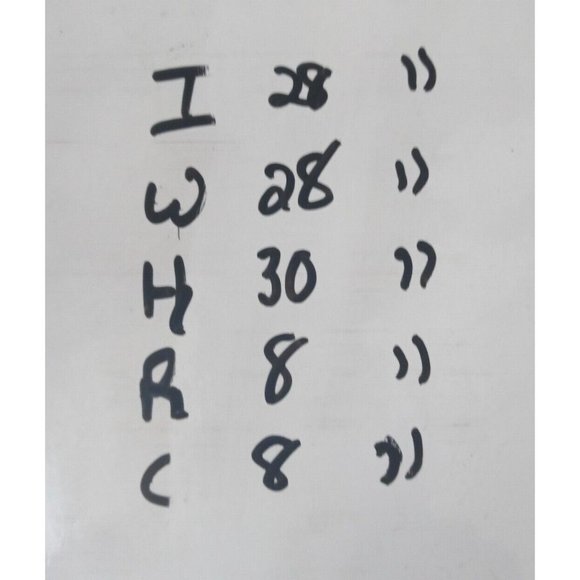 I 28 "
W 28 "
H 30 "
R 8 "
C 8 "